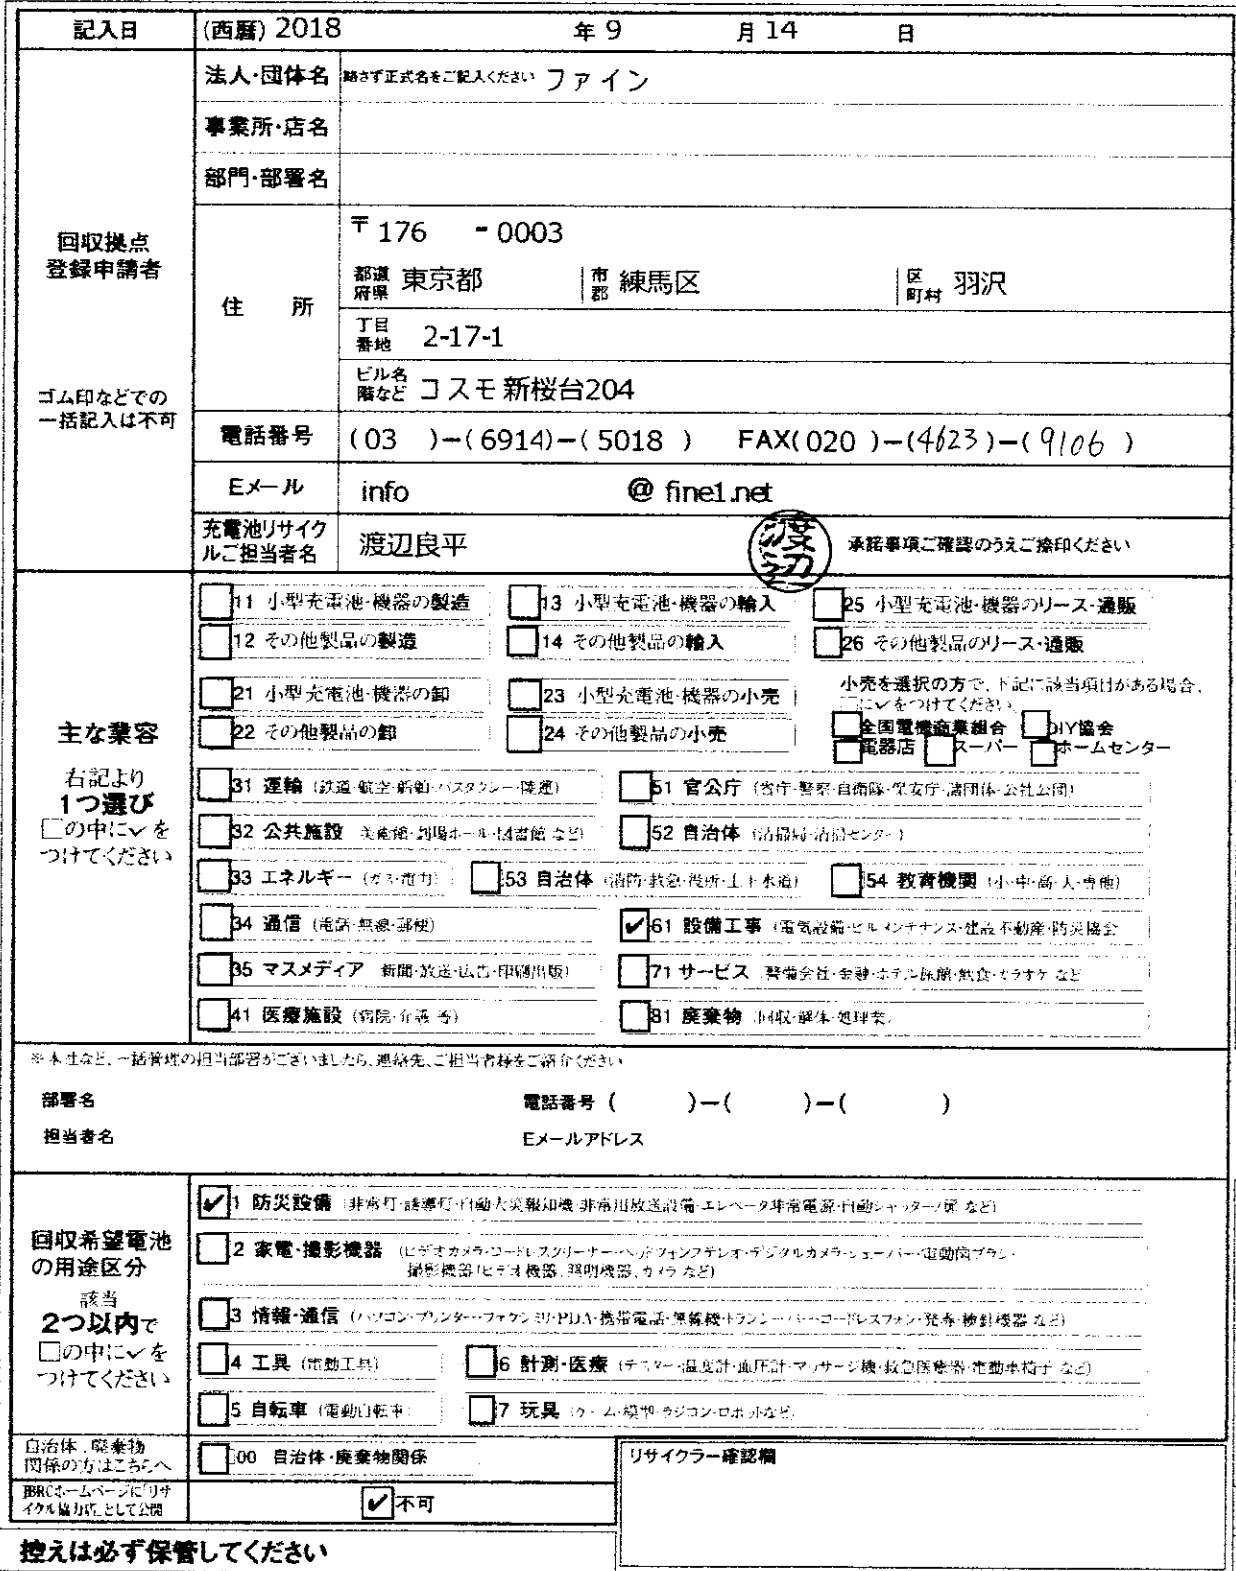 記入日 (西暦) 2018 年 9 月 14 日
回収拠点
登録申請者
ゴム印などでの
一括記入は不可
法人・団体名 略さず正式名をご記入ください ファイン
事業所・店名
部門・部署名
住 所
〒 176 - 0003
都道府県 東京都 市郡 練馬区 区町村 羽沢
丁目番地 2-17-1
ビル名階など コスモ新桜台204
電話番号 (03 )-(6914)-(5018 ) FAX(020 )-(4623)-(9106 )
Eメール info @ fine1.net
充電池リサイクルご担当者名 渡辺良平 渡辺 承諾事項ご確認のうえご捺印ください
主な業容
右記より
1つ選び
□の中に✓を
つけてください
□11 小型充電池・機器の製造 □13 小型充電池・機器の輸入 □25 小型充電池・機器のリース・通販
□12 その他製品の製造 □14 その他製品の輸入 □26 その他製品のリース・通販
□21 小型充電池・機器の卸 □23 小型充電池・機器の小売
□22 その他製品の卸 □24 その他製品の小売
小売を選択の方で、下記に該当項目がある場合、
□に✓をつけてください
□全国電機商業組合 □DIY協会
□電器店 □スーパー □ホームセンター
□31 運輸 (鉄道・航空・船舶・バスタクシー・陸運) □51 官公庁 (省庁・警察・自衛隊・保安庁・諸団体・公社公団)
□32 公共施設 美術館・劇場ホール・図書館 など) □52 自治体 (清掃局・清掃センター)
□33 エネルギー (ガス・電力) □53 自治体 (消防・救急・役所・上下水道) □54 教育機関 (小・中・高・大・専他)
□34 通信 (電話・無線・郵便) ☑61 設備工事 (電気設備・ビルメンテナンス・建設 不動産・防災協会
□35 マスメディア 新聞・放送・広告・印刷出版) □71 サービス 警備会社・金融・ホテル旅館・飲食・カラオケ など
□41 医療施設 (病院・介護 等) □81 廃棄物 (回収・解体・処理業)
※本社など、一括管理の担当部署がございましたら、連絡先、ご担当者様をご紹介ください
部署名 電話番号 ( )-( )-( )
担当者名 Eメールアドレス
回収希望電池
の用途区分
該当
2つ以内で
□の中に✓を
つけてください
☑1 防災設備 (非常灯・誘導灯・自動火災報知機・非常用放送設備・エレベータ非常電源・自動シャッター/扉 など)
□2 家電・撮影機器 (ビデオカメラ・コードレスクリーナー・ヘッドフォンステレオ・デジタルカメラ・シェーバー・電動歯ブラシ・
撮影機器(ビデオ機器、照明機器、カメラ など)
□3 情報・通信 (パソコン・プリンター・ファクシミリ・PDA・携帯電話・無線機・トランシーバー・コードレスフォン・発券・検針機器 など)
□4 工具 (電動工具) □6 計測・医療 (テスター・温度計・血圧計・マッサージ機・救急医療器・電動車椅子 など)
□5 自転車 (電動自転車) □7 玩具 (ゲーム・模型・ラジコン・ロボットなど)
自治体、廃棄物
関係の方はこちらへ
□00 自治体・廃棄物関係
リサイクラー確認欄
JBRCホームページに「リサ
イクル協力店」として公開
☑不可
控えは必ず保管してください